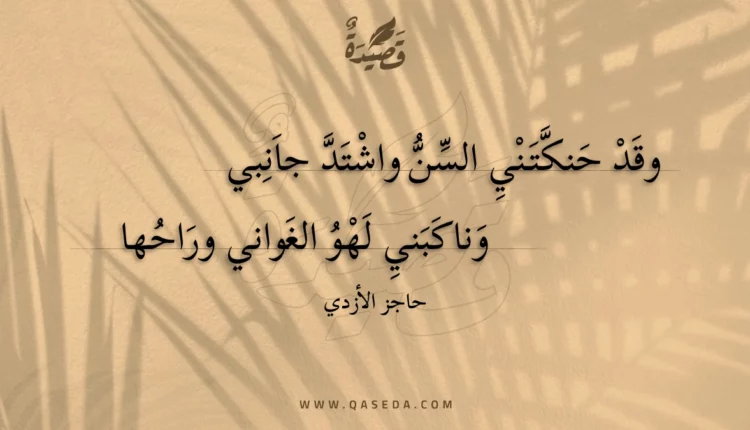 قَصِيْدَةٌ
وقَدْ حَنكَّتَنْيِ السِّنُّ واشْتَدَّ جاَنِبي
وَناكَبَنيِ لَهْوُ الغَواني ورَاحُها
حاجز الأزدي
WWW.QASEDA.COM